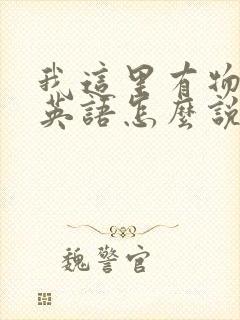 我這里有物
英語怎麼說
魏警官